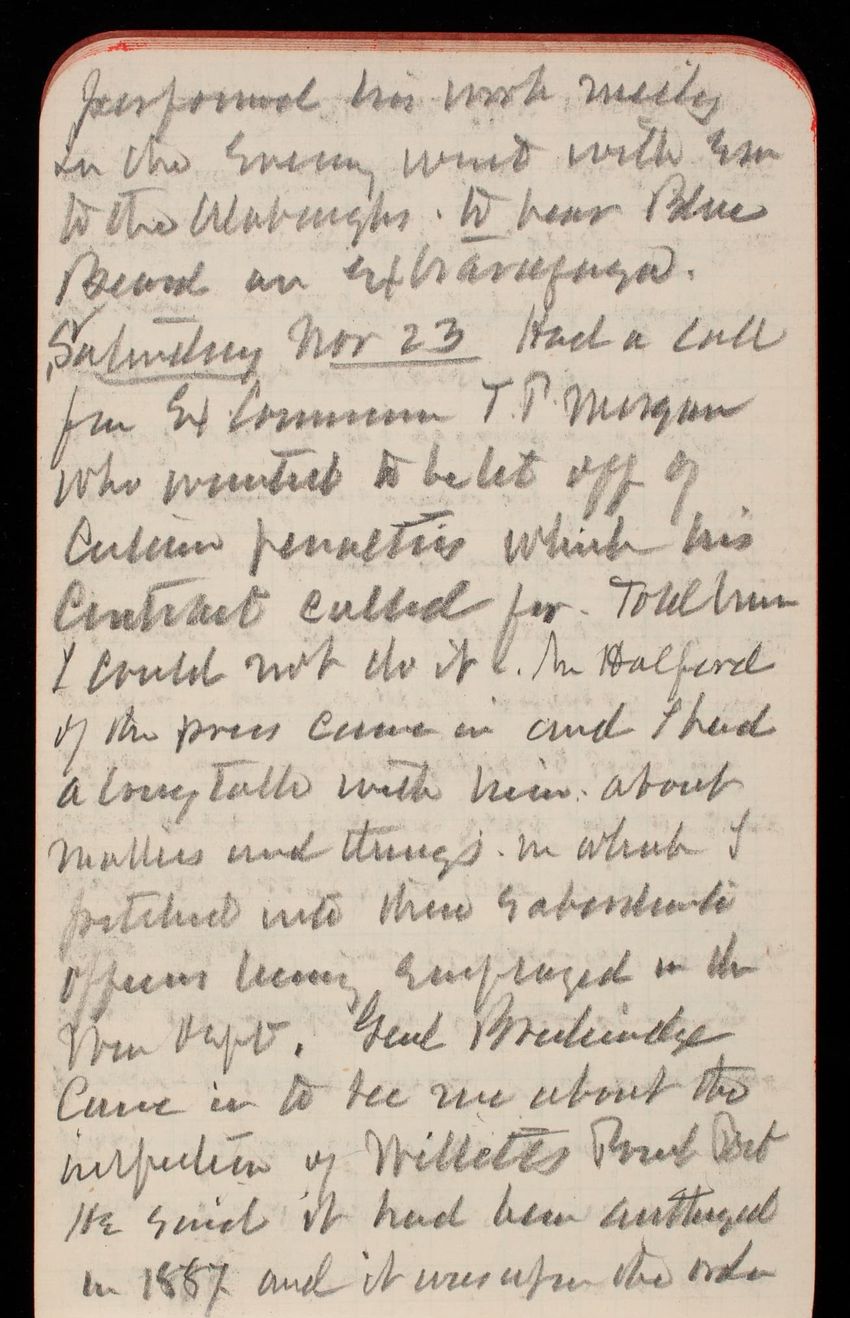 performed his work nicely
In the Evening went with Em
to the Albaughs. to hear Blue
Beard an Extravaganza.
Saturday Nov 23 Had a call
from Ex Commissioner T. P. Morgan
who wanted to be let off of
Certain penalties which his
Contract called for. Told him
I could not do it. Mr Halford
of the press came in and I had
a long talk with him. about
matters and things. in which I
pitched into these subordinate
officers being employed in the
War Dept. Genl Breckinridge
Came in to see me about the
inspection of Willetts Point Post
He said it had been
in 1887 and it was upon the order